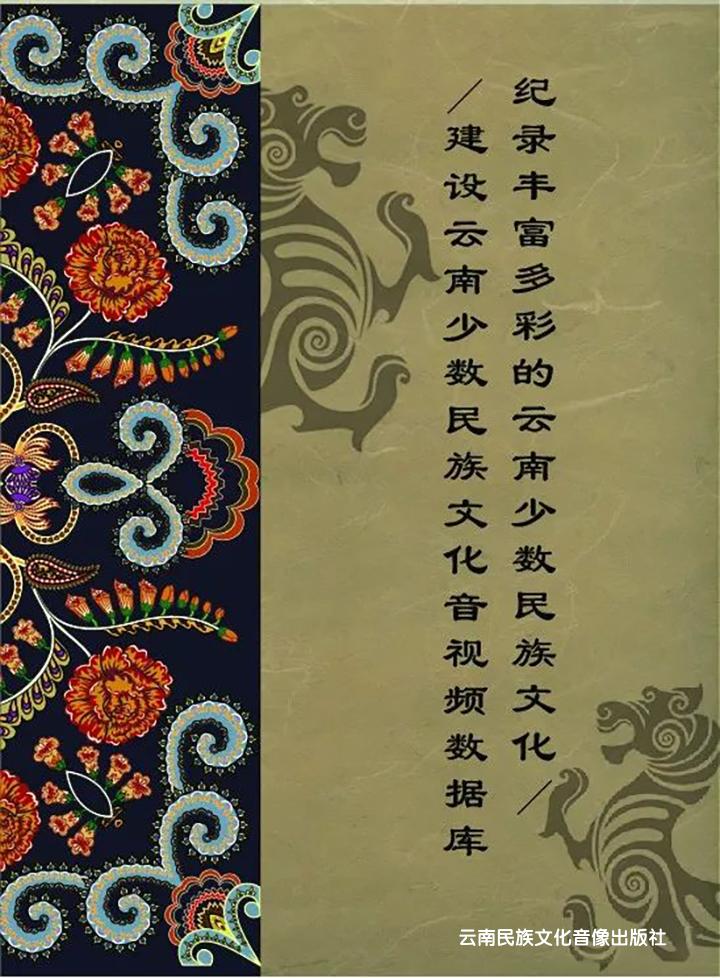 纪录丰富多彩的云南少数民族文化/
/建设云南少数民族文化音视频数据库
云南民族文化音像出版社